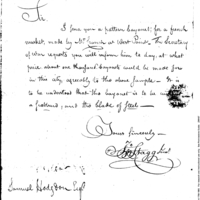 Sir
I send you a pattern bayonet, for a french
musket, made by Mr. at West Point. The Secretary
of War requests you will inform him to day, at what
price about one thousand bayonets could be made for
in this city, agreeably to the above sample. It is
to be understood that the bayonet is to be
and the blade of steel
Yours sincerely
Jno Stagg Jr
Samuel Hodgdon Esqr